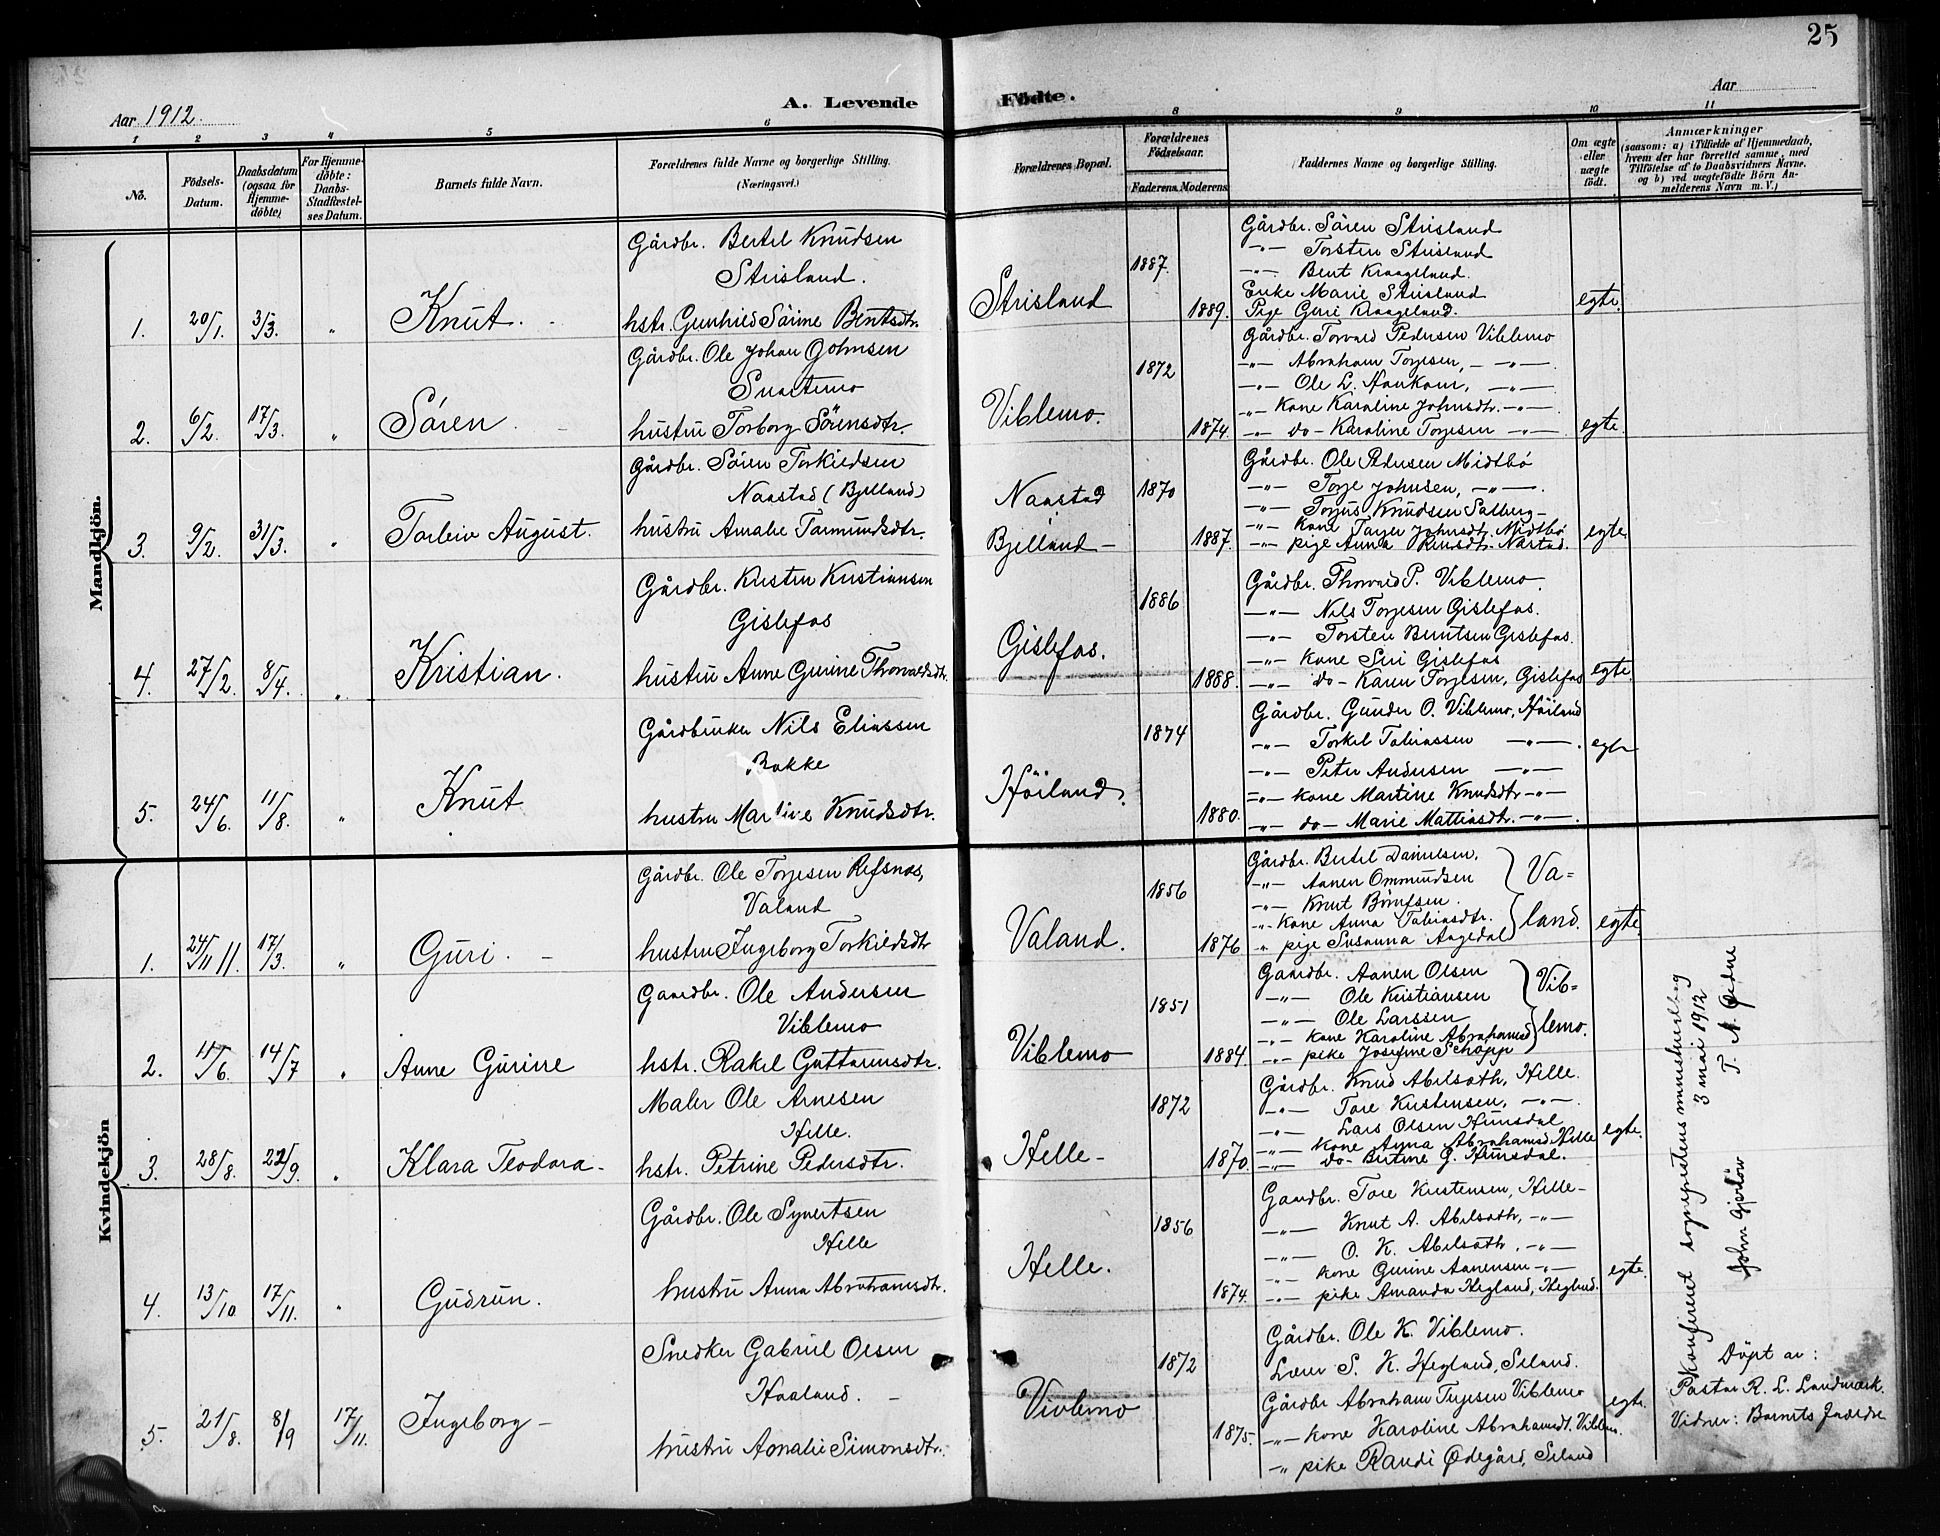 25
Aar 1912.
A. Levende Födte.
Aar
1 2 3 4 5 6 8 9 10 11
No.
Födsels-Datum.
Daabsdatum (ogsaa for Hjemme-döbte)
For Hjemme-döbte: Daabs-Stadfæstel-ses Datum.
Barnets fulde Navn.
Forældrenes fulde Navne og borgerlige Stilling. (Næringsvei.)
Forældrenes Bopæl.
Forældrenes Födselsaar.
Faderens. Moderens
Faddernes Navne og borgerlige Stilling.
Om ægte eller uægte födt.
Anmærkninger
(saasom: a) i Tilfælde af Hjemmedaab,
hvem der har forrettet samme, med
Tilföielse af to Daabsvidners Navne.
og b) ved uægtefödte Börn An-
melderens Navn m. V.)
Mandkjön.
1. 20/1. 3/3. " Knut.
Gårdbr. Bertel Knudsen
Strisland.
hstr. Gunhild Sörine Berntsdtr.
Strisland
1887.
1889.
Gårdbr. Sören Strisland
-"- Torsten Strisland
-"- Bent Kraageland.
Enke Marie Strisland
Pige Guri Kraageland.
egte.
2. 6/2. 17/3. " Sören.
Gårdbr. Ole Johan Johnsen
Snartemo
hustru Torborg Sörensdtr.
Viblemo.
1872
1874.
Gårdbr. Torvald Pedersen Viblemo
-"- Abraham Torjesen, -"-
-"- Ole L. Haukom, -"-
-"- Kone Karoline Johnsdtr. -"-
-"- do - Karoline Torjesen -"-
egte.
3. 9/2. 31/3. " Torleiv August.
Gårdbr. Sören Torkildsen
Naastad (Bjelland)
hustru Amalie Tarmundsdtr.
Naastad
Bjelland -
1870
1887.
Gårdbr. Ole Pedersen Midtbö
-"- Torje Johnsen, -"-.
-"- Torjus Knudsen Solberg-
-"- kone Tarjer Johnsdtr. Midtbö
-"- pige Anna Knudsdtr. Nastad.
egte
4. 27/2. 8/4. " Kristian.
Gårdbr. Kristen Kristiansen
Gislefos
hustru Anne Gurine Thorvaldsdtr.
Gislefos.
1886
1888.
Gårdbr. Thorvald P. Viblemo.
-"- Nils Torjesen Gislefos.
-"- Torsten Berntsen Gislefos.
-"- Kone Siri Gislefos
-"- do - Karen Torjesen, Gislefos
egte.
5. 24/6. 11/8. " Knut
Gårdbruker Nils Eliassen
Bakke
hustru Martine Knudsdtr.
Höiland.
1874
1880.
Gårdbr. Gunder O. Viblemo, Höiland
-"- Torkel Tobiassen -"-.
-"- Peter Andersen -"-
-"- kone Martine Knudsdtr -"-
-"- do - Marie Mattiasdtr. -"-.
egte
Kvindekjön
1. 24/11 11. 17/3. " Guri. -
Gårdbr. Ole Torjesen Refsnes,
Valand
hustru Ingeborg Torkildsdtr
Valand.
1856
1876
Gårdbr. Bertel Danielsen,
-"- Aanen Ommundsen
-"- Knut Berntsen.
-"- Kone Anna Tobiasdtr.
" pige Susanna Aagedal
Valand.
egte.
2. 11/6. 14/7 " Anne Gurine
Gaardbr. Ole Andersen
Viblemo
hstr. Rakel Guttormsdtr.
Viblemo
1851
1884
Gaardbr. Aanen Olsen
-"- Ole Kristiansen
-"- Ole Larssen
-"- kone Karoline Abrahamsd
-"- pike Josefine Schöpp
Vib=lemo.
3. 28/8. 22/9. " Klara Teodora -
Maler Ole Arnesen
Helle.
hstr. Petrine Pedersdtr.
Helle -
1872
1870.
Gårdbr. Knud Abelsæth, Helle.
-"- Tore Kristensen, -"-.
-"- Lars Olsen Hunsdal
-"- kone Anna Abrahamsd Helle
-"- do - Bertine G. Hunsdal.
egte.
4. 13/10 17/11. " Gudrun.
Gårdbr. Ole Syvertsen
Helle
hustru Anna Abrahamsdtr.
Helle.
1856
1874.
Gaardbr. Tore Kristensen, Helle-
-"- Knut A. Abelsæth, -"-
-"- O. K. Abelsæth. -"-
-"- kone Gurine Aanensen -"-
-"- pike Amanda Hegland, Hegland.
egte.
5. 21/8. 8/9 17/11. Ingeborg -
Snedker Gabriel Olsen
Haaland. -
hustru Amalie Simonsdtr.
Viblemo
1872
1875.
Gårdbr. Ole K. Viblemo.
Lærer S. K. Hegland, Seland.
Gårdbr Abraham Terjesen Viblemo
-"- kone Karoline Abrahamsdt. Viblem.
-"- pike Randi Ödegård, Seland
egte.
Döpt av:
Pastor R. L. Landmark.
Vidner: Barnets Foreldre
Konfereret sogneprestens ministerialbog
3 mai 1912
John Gjerlöw T. A. Ødne